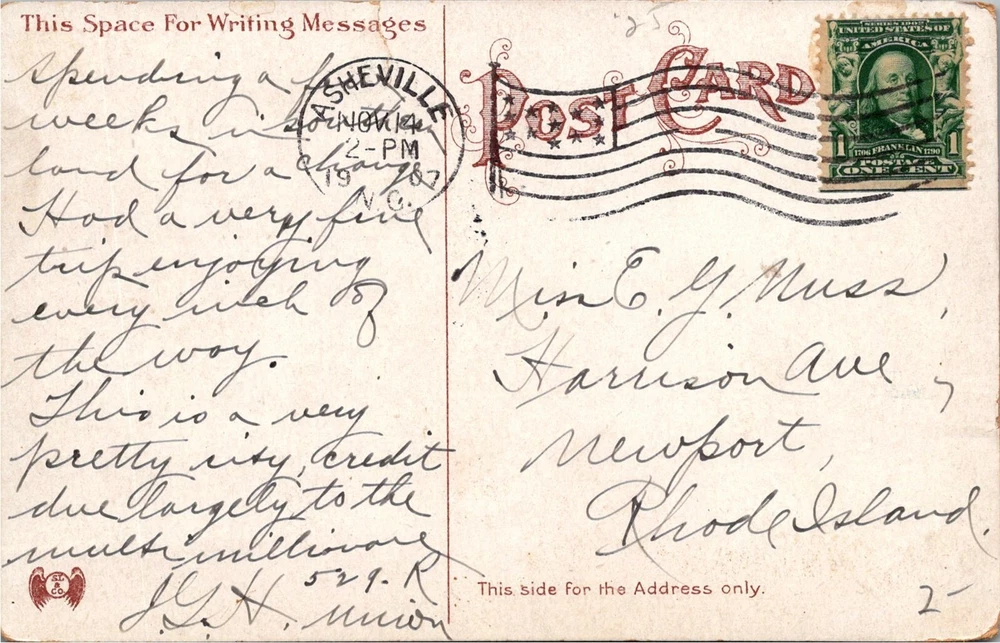 This Space For Writing Messages
Spending a
weeks in southern
land for a change
Had a very fine
trip enjoying
every inch of
the way.
This is a very
pretty city, credit
due largely to the
multi millionare
J.G.H. 529-R
Union
S.L. & CO.
ASHEVILLE
NOV 14
2-PM
1907
N.C.
'25
POST CARD
SERIES 1902
UNITED STATES OF
AMERICA
1 1
1706 FRANKLIN 1790
POSTAGE
ONE CENT
Miss E. G. Nuss,
Harrison Ave,
Newport,
Rhode Island.
This side for the Address only.
2-